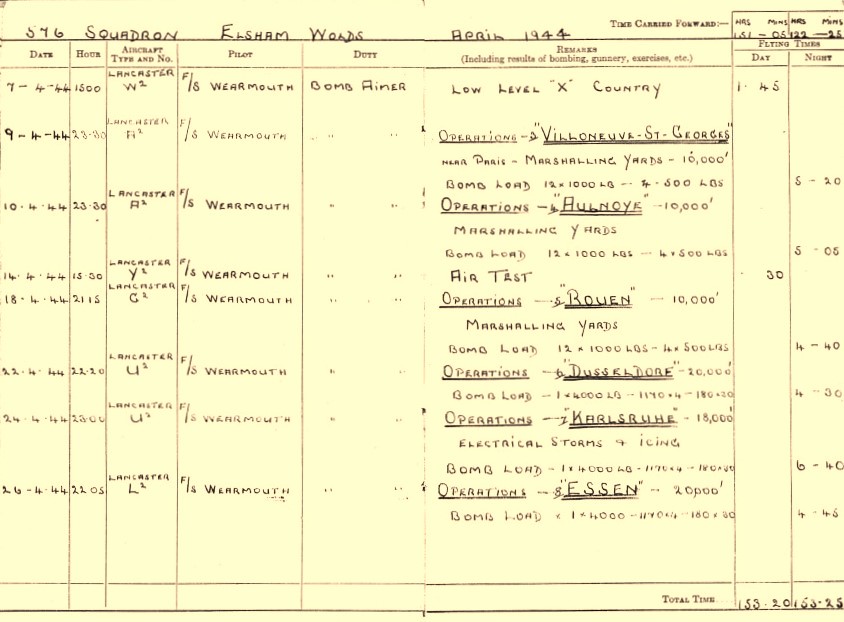 576 SQUADRON ELSHAM WOLDS APRIL 1944 TIME CARRIED FORWARD:— HRS MINS HRS MINS
151-05 122-25
DATE HOUR AIRCRAFT TYPE AND NO. PILOT DUTY REMARKS (Including results of bombing, gunnery, exercises, etc.) FLYING TIMES DAY NIGHT
7-4-44 1500 LANCASTER W² F/S WEARMOUTH BOMB AIMER LOW LEVEL "X" COUNTRY 1·45
9-4-44 23-30 LANCASTER A² F/S WEARMOUTH " " OPERATIONS - "VILLONEUVE-ST-GEORGES"
NEAR PARIS - MARSHALLING YARDS - 10,000'
BOMB LOAD 12×1000 LB -- 4-500 LBS 5-20
10·4·44 23·30 LANCASTER A² F/S WEARMOUTH " " OPERATIONS - "AULNOYE" -10,000'
MARSHALLING YARDS
BOMB LOAD 12×1000 LBS - 4×500LBS 5-05
14·4·44 15·30 LANCASTER Y² F/S WEARMOUTH " " AIR TEST 30
18·4·44 2115 LANCASTER G² F/S WEARMOUTH " " OPERATIONS - 5 "ROUEN" - 10,000'
MARSHALLING YARDS
BOMB LOAD 12×1000 LBS - 4×500LBS 4-40
22·4·44 22·20 LANCASTER U² F/S WEARMOUTH " " OPERATIONS - 6 "DUSSELDORF" -20,000'
BOMB LOAD -1×4000 LB -1170×4 -180×30 4-30
24·4·44 23·00 LANCASTER U² F/S WEARMOUTH " " OPERATIONS - 7 "KARLSRUHE" - 18,000'
ELECTRICAL STORMS + ICING
BOMB LOAD - 1×4000 LB -1170×4 -180×30 6-40
26-4-44 2205 LANCASTER L² F/S WEARMOUTH " " OPERATIONS - 8 "ESSEN" - 20,000'
BOMB LOAD × 1×4000 -1170×4 -180×30 4-45
TOTAL TIME 153·20 153-25